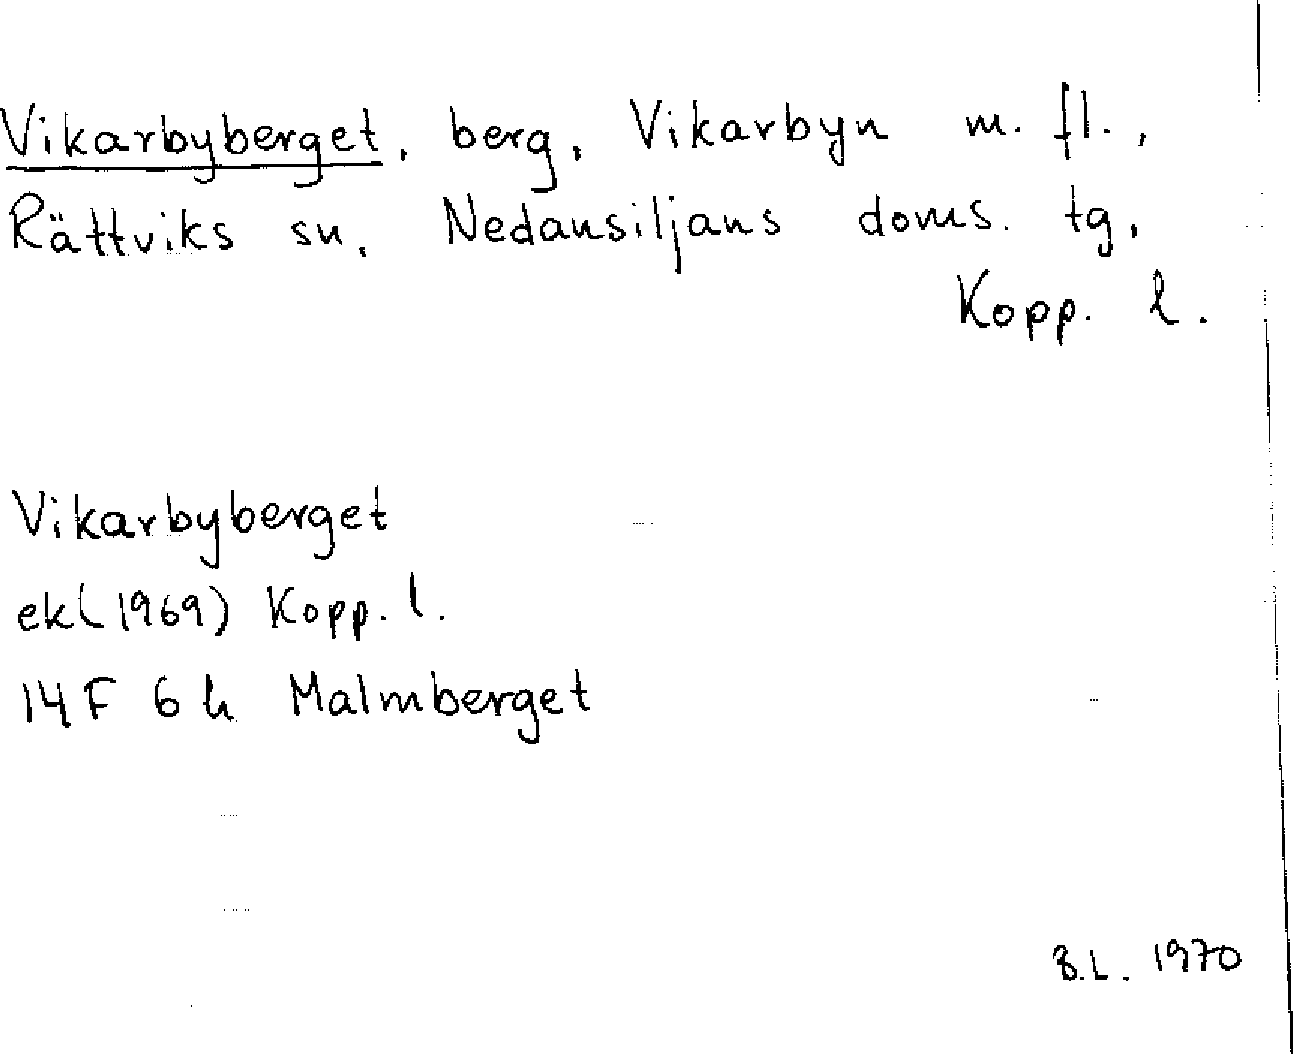 Vikarbyberget, berg, Vikarbyn m. fl.,
Rättviks sn, Nedansiljans doms. tg,
Kopp. l.
Vikarbyberget
ek (1969) Kopp. l.
14F 6h Malmberget
B.L. 1970